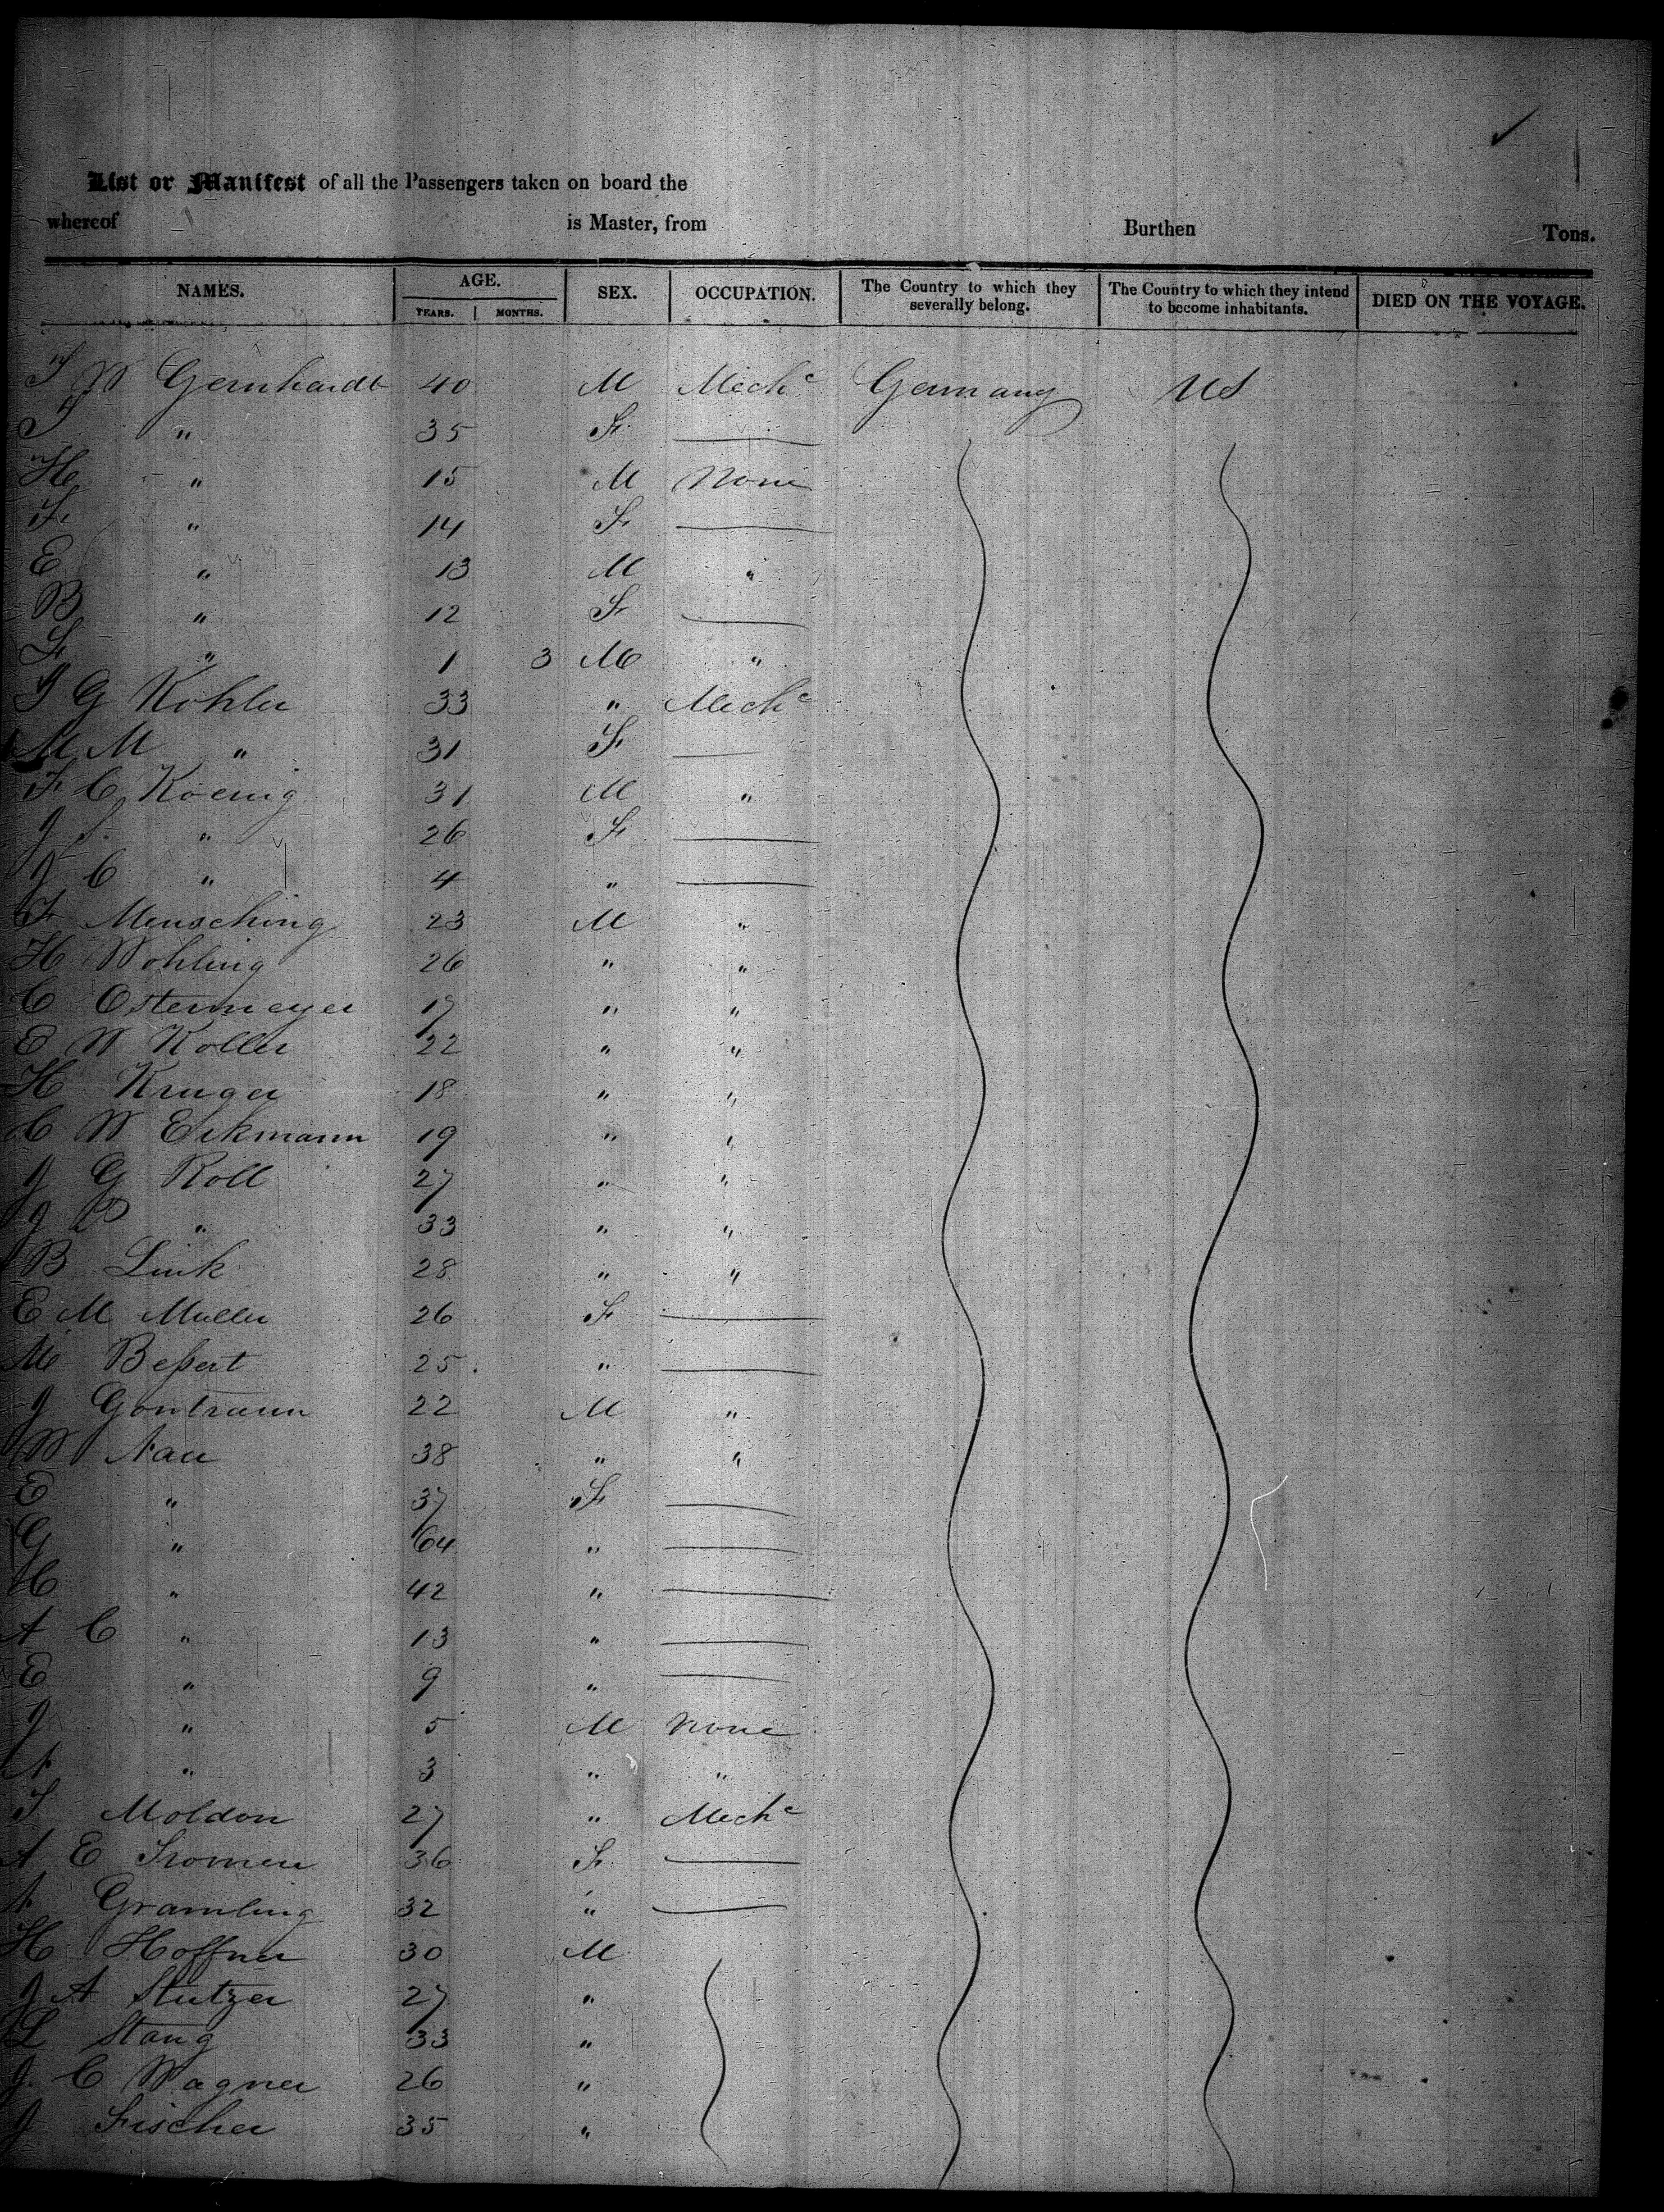 List or Manifest of all the Passengers taken on board the
whereof is Master, from Burthen Tons.
NAMES. AGE. SEX. OCCUPATION. The Country to which they severally belong. The Country to which they intend to become inhabitants. DIED ON THE VOYAGE.
YEARS. MONTHS.
W Gernhardt 40 M Mechc Germany US
" 35 F
H " 15 M None
F " 14 F
E " 13 M "
B " 12 F
F " 1 3 M "
G Kohler 33 " Mechc
M M " 31 F
F C Koenig 31 M "
J " 26 F
J C " 4 "
F Mensching 23 M "
H Wohling 26 " "
C Ostermeyer 17 " "
E W Koller 22 " "
H Kruger 18 " "
C W Eikmann 19 " "
J G Roll 27 " "
J P " 33 " "
B Link 28 " "
E M Muller 26 F
M Beßert 25 "
J Gontraum 22 M "
W Nau 38 " "
E " 37 F
G " 64 "
C " 42 "
A C " 13 "
E " 9 "
J " 5 M None
A " 3 " "
Moldon 27 " Mechc
A E 36 F
A Gramling 32 "
H Hoffner 30 M
J A Stutzer 27 "
L Stang 33 "
J C Wagner 26 "
J Fischer 35 "